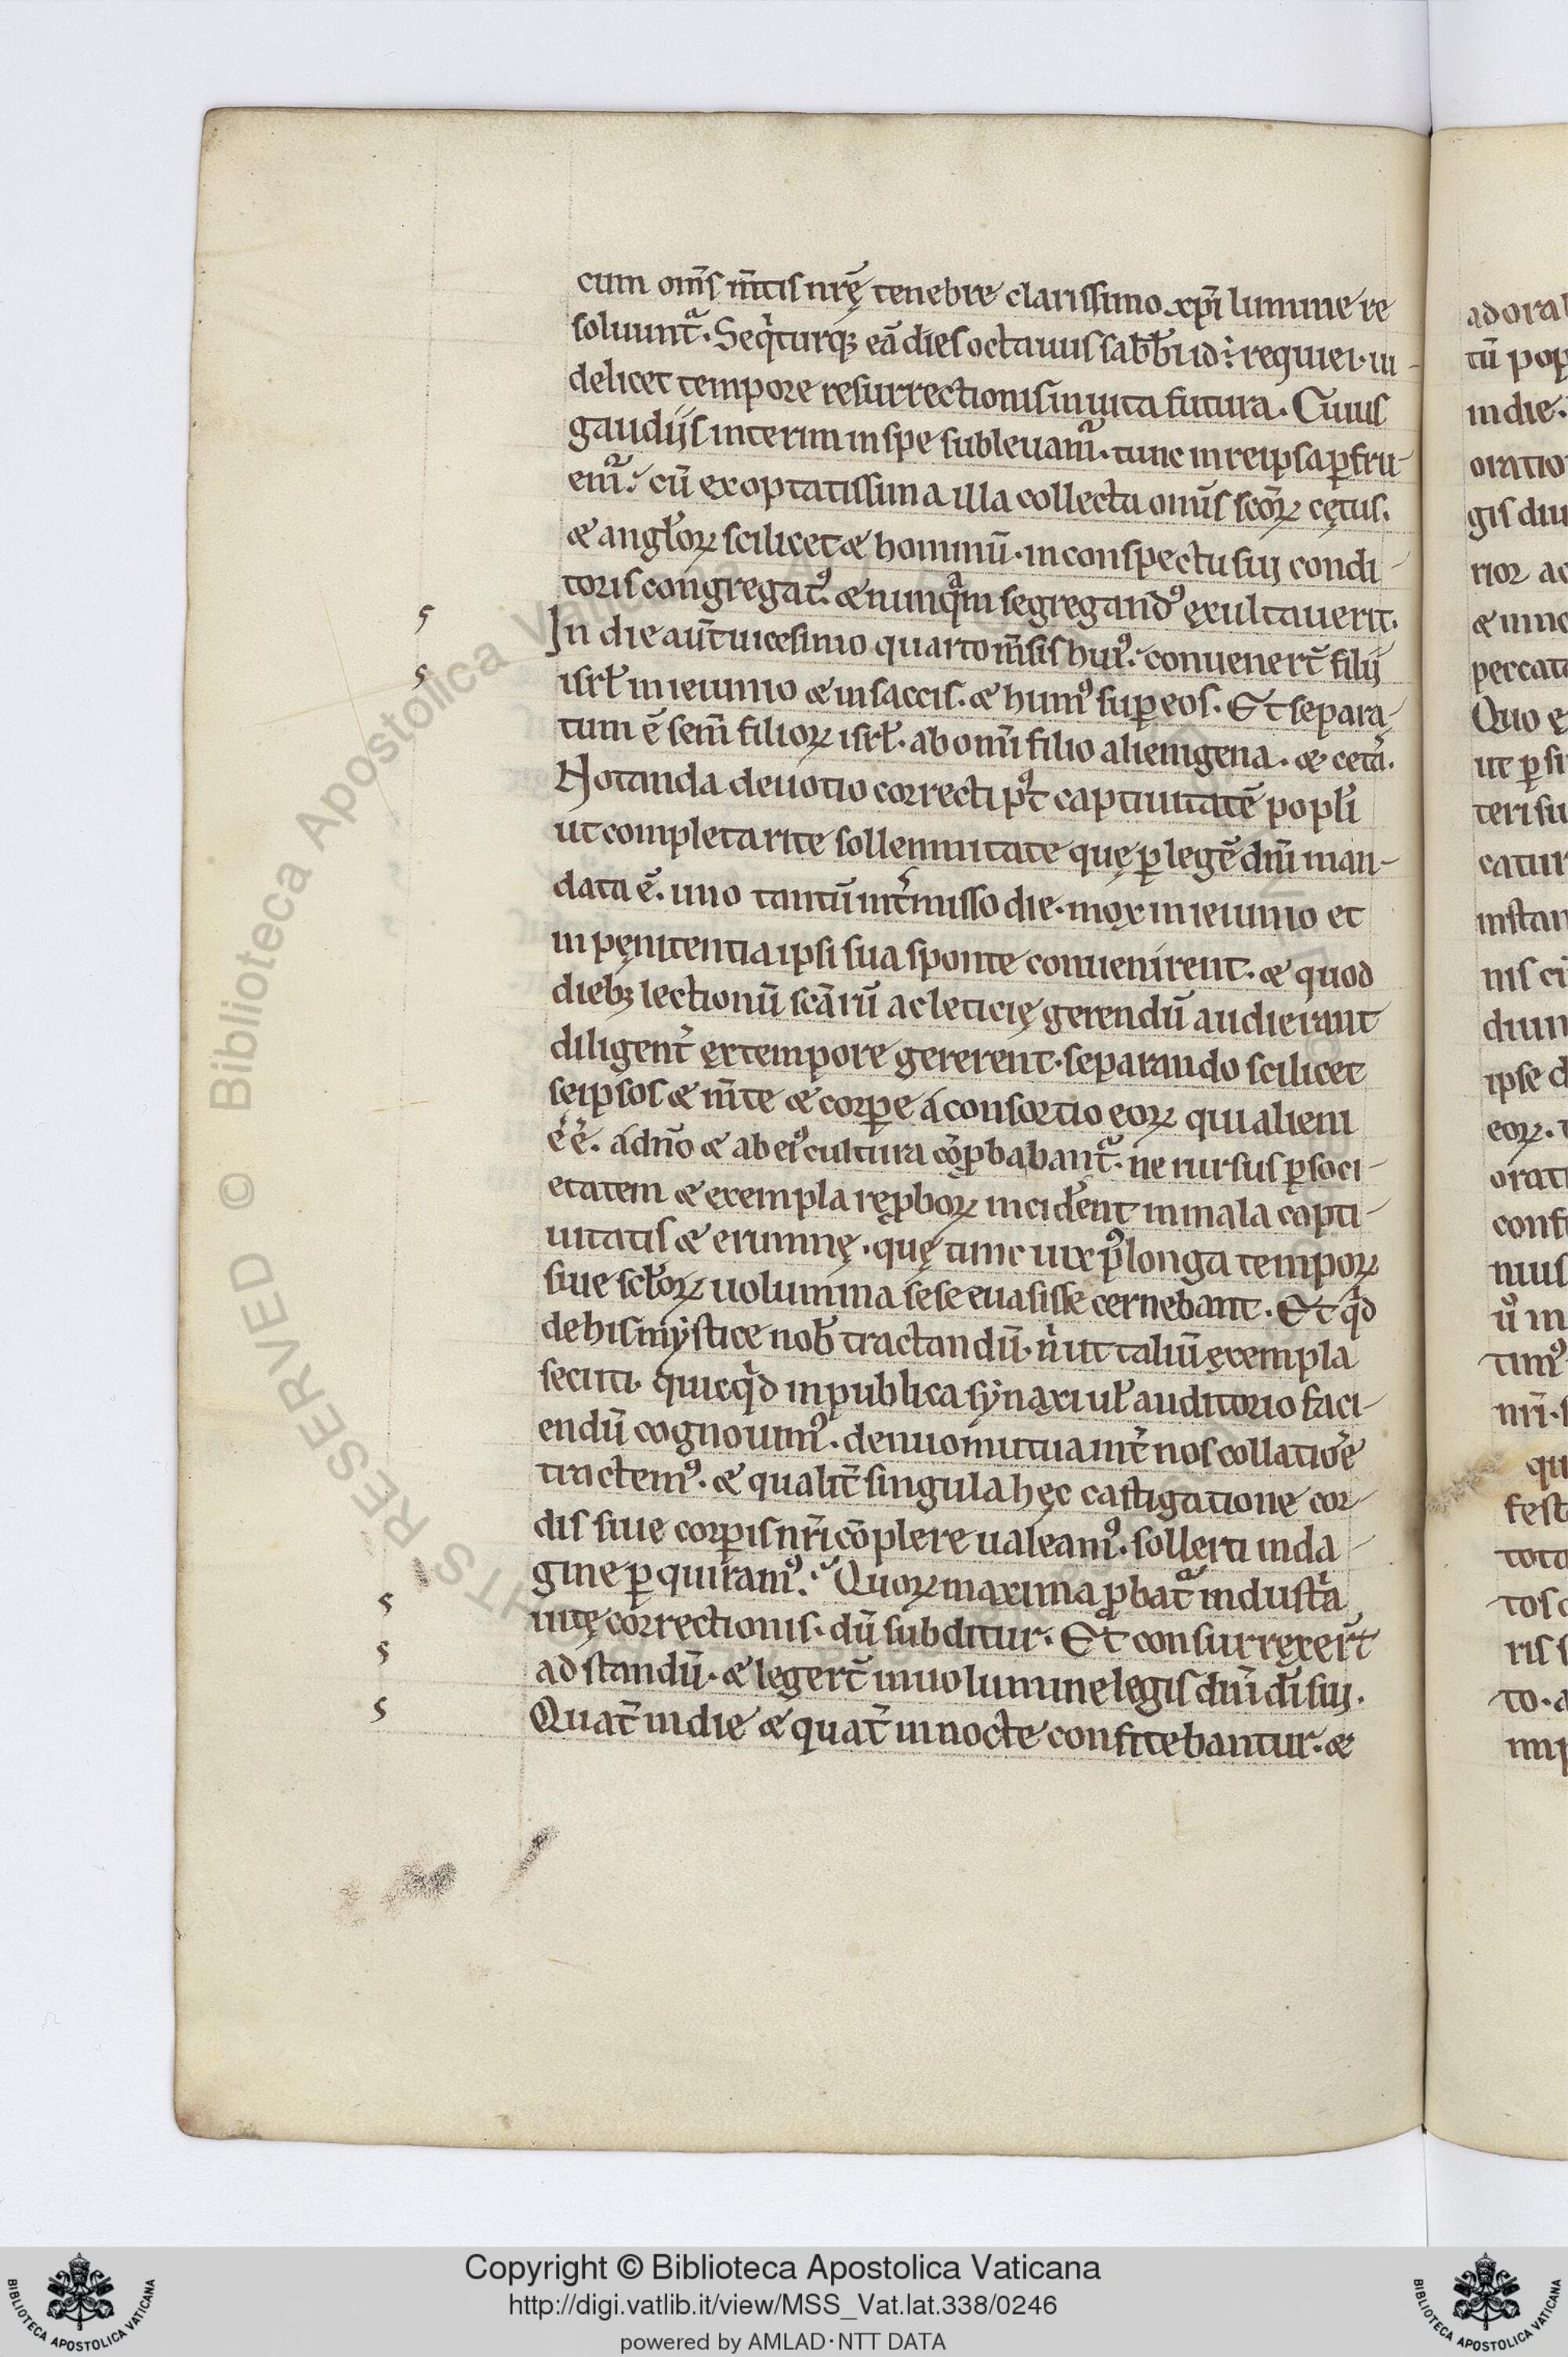 cum om̄s m̄tis nr̄ę tenebre clarissimo xp̄i lumine re
soluunt᷑. Seq̇turq; eā dies octauus sab̄b̄i id ÷ requiei. ui-
delicet tempore resurrectionis in uita futura. Cuius
gaudijs interim in spe subleuam᷑. tunc in re ipsa ꝑfru-
em᷑. cū exoptatissima illa collecta omīs sc̄oꝝ cętus.
& angl̄oꝝ scilicet & hominū. in conspectu sui condi-
toris congregatꝰ. & nunqᵃm segregandꝰ exultauerit.
In die aūt uicesimo quarto m̄sis huiꝰ. conuenert̄ filij
isrł in ieiunio & in saccis. & humꝰ suꝑ eos. Et separa-
tum ē sem̄ filioꝝ isrł. ab om̄i filio alienigena. & cetᷓa.
Notanda deuotio correcti pꝰt captiuitatē popl̄i
ut completa rite sollennitate quę ꝑ legē dn̄i man-
data ē. uno tantū int̄misso die. mox in ieiunio et
in pęnitentia ipsi sua sponte conuenirent. & quod
dieb; lectionū sc̄arū ac leticię gerendū audierant
diligent̄ ex tempore gererent. separando scilicet
se ipsos & m̄te & corꝑe á consortio eoꝝ qui alieni
ēē. á dn̄o & ab eiꝰ cultura cōꝓbabant᷑. ne rursus ꝑ soci-
etatem & exempla reꝓboꝝ incidēnt in mala capti-
uitatis & erumnę. quę tunc uix pꝰ longa tempoꝝ
siue scl̄oꝝ uolumina sese euasisse cernebant. Et qͥd
de his mẏstice nob̄ tractandū. nͥ ut taliū exempla
secuti. quicqͥd in publica sẏnaxi uł auditorio faci-
endū cognouimꝰ. denuo mutua int̄ nos collatiōe
tractemꝰ. & qualit̄ singula hęc castigatione cor-
dis siue corꝑis nr̄i cōplere ualeamꝰ. sollerti inda-
gine ꝑquiramꝰ. Quoꝝ maxima ꝓbat᷑ industͥa
uitę correctionis. dū subditur. Et consurrexert̄
ad standū. & legert̄ in uolumine legis dn̄i dī sui.
Quat̄ in die & quat̄ in nocte confitebantur. &
s
s
s
s
s
adora
tū pop
in die.
oratio
gis diu
rior ac
peccata
Quo e
ut ꝑ si
teri su
catur
instan
nis ci
diuin
ipse d
eoꝝ.
orati
conf
nius
uͦ in
timꝰ
nr̄i.
qu
fest
tota
tos
ris s
to. a
imp
© Biblioteca Apostolica Vaticana
RIGHTS RESERVED
Copyright © Biblioteca Apostolica Vaticana
http://digi.vatlib.it/view/MSS_Vat.lat.338/0246
powered by AMLAD·NTT DATA
BIBLIOTECA APOSTOLICA VATICANA
BIBLIOTECA APOSTOLICA VATICANA